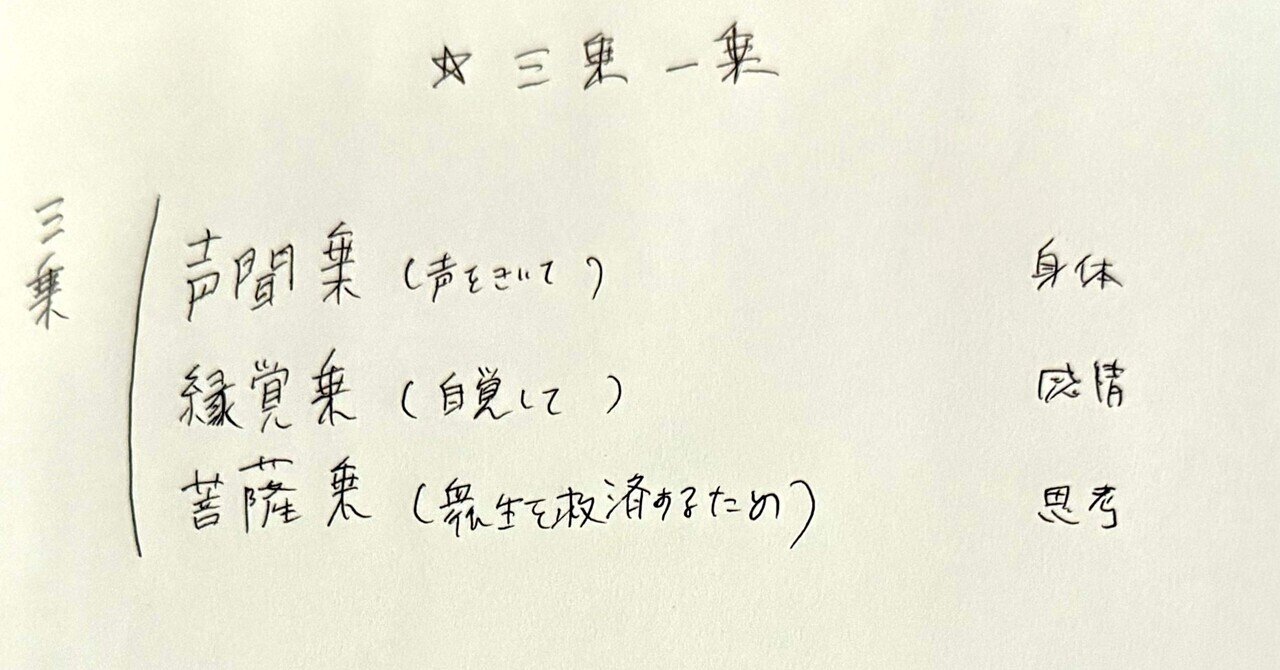 ☆ 三乗一乗
三乗
声聞乗 (声をきいて) 身体
縁覚乗 (自覚して) 感情
菩薩乗 (衆生を救済するため) 思考